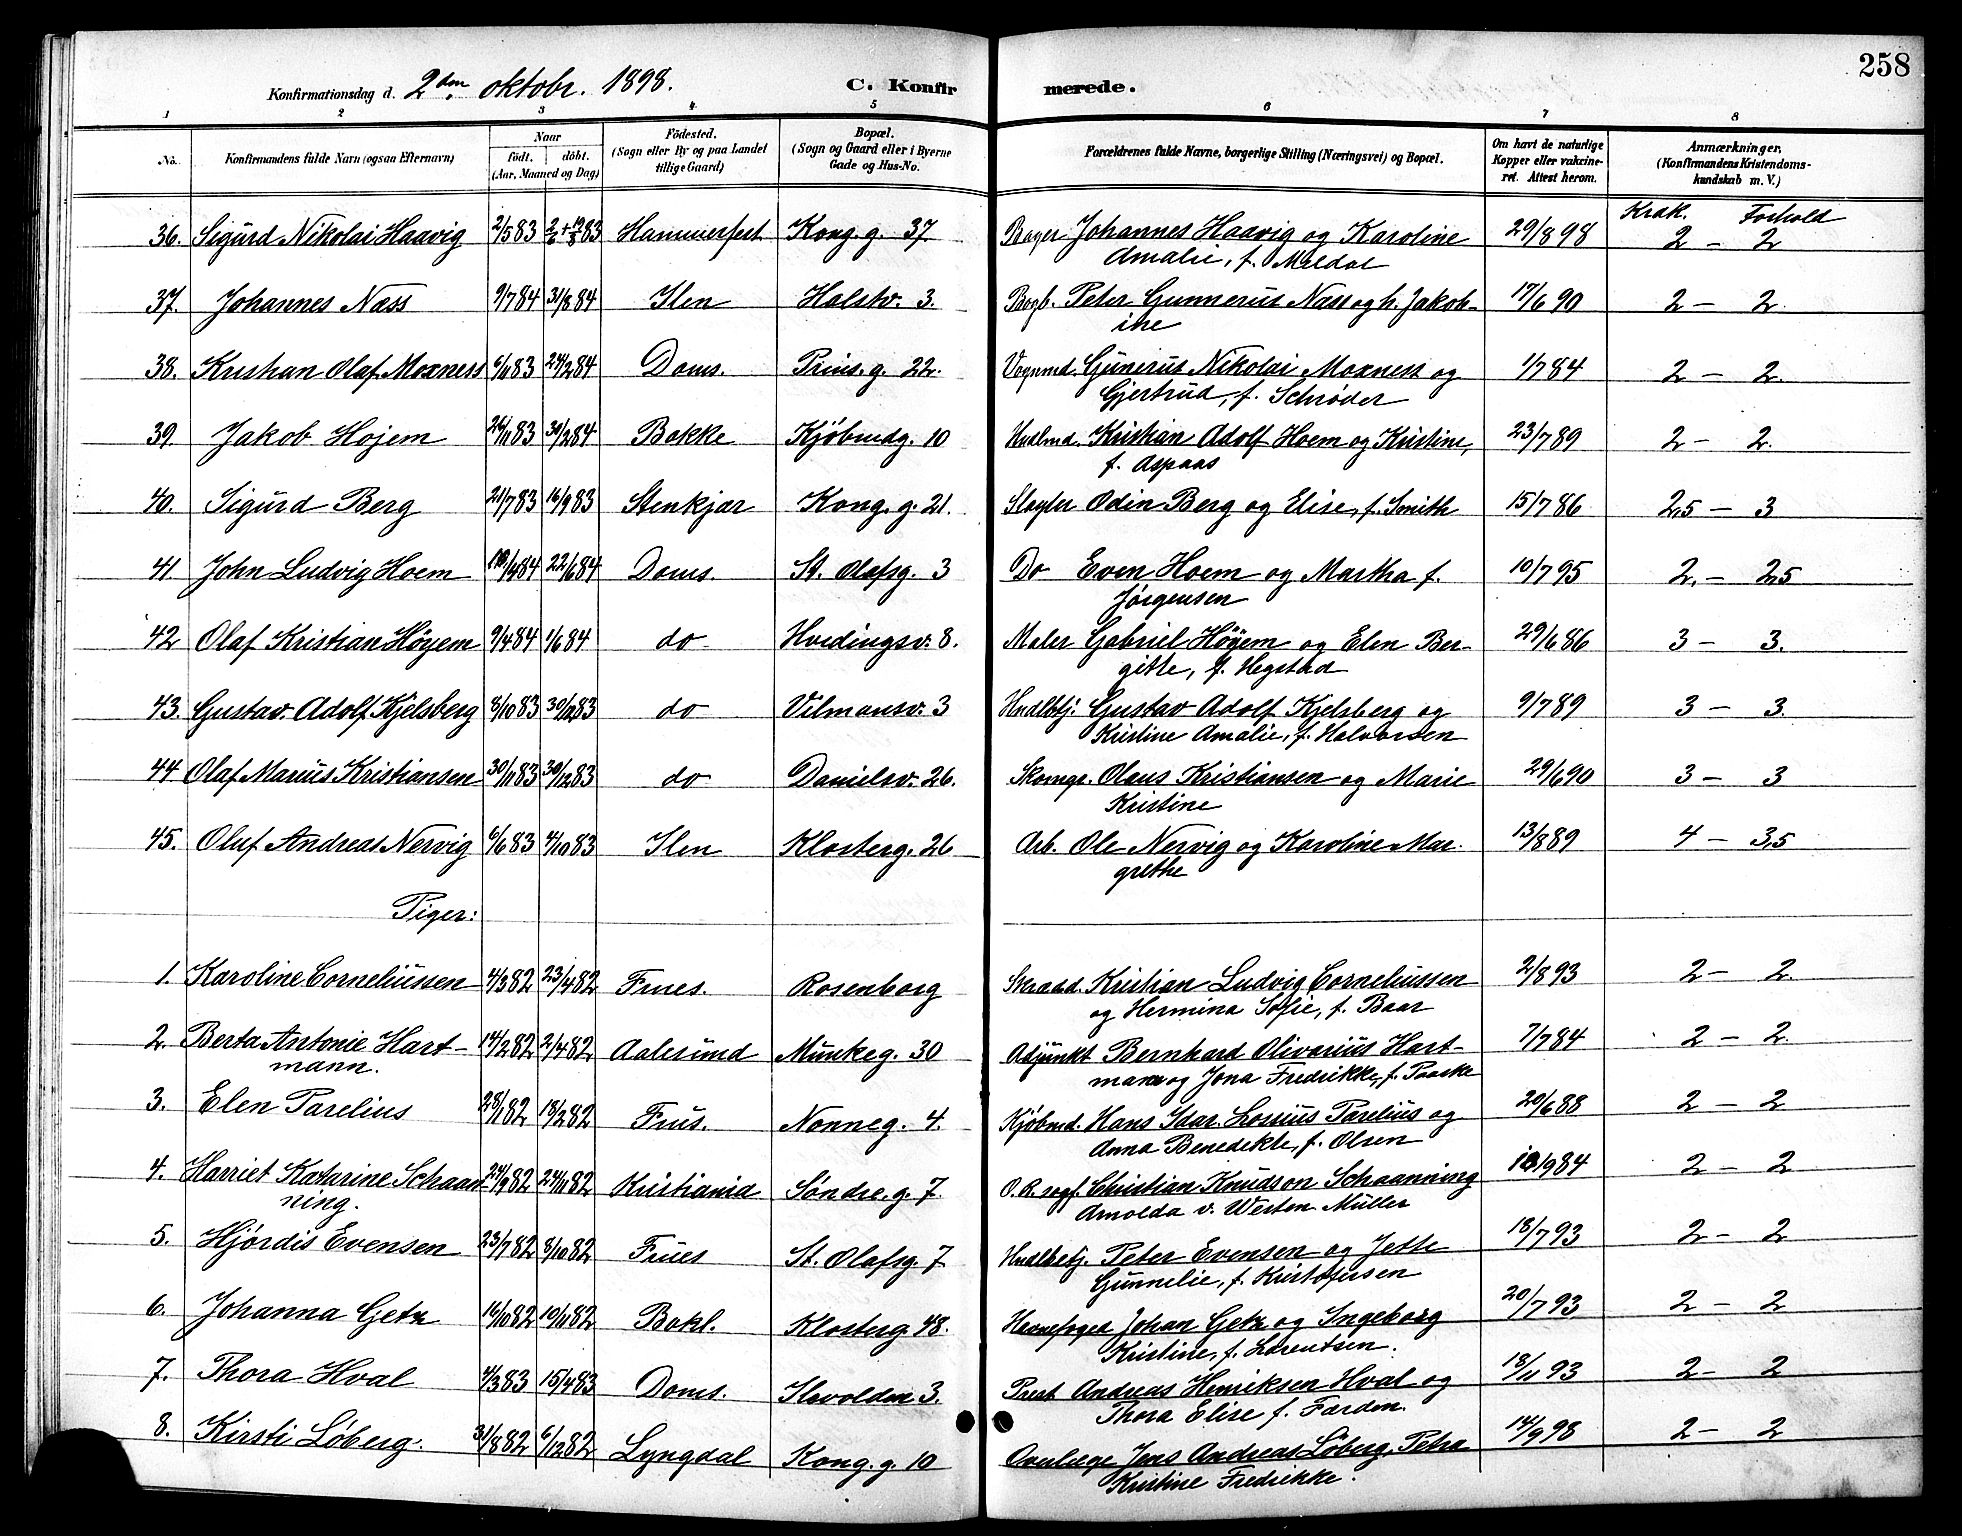 258
Konfirmationsdag d. 2den oktobr. 1898. C. Konfirmerede.
1 2 3 4 5 6 7 8
No. Konfirmandens fulde Navn (ogsaa Efternavn) Naar født. døbt. (Aar, Maaned og Dag) Fødested. (Sogn eller By og paa Landet tillige Gaard) Bopæl. (Sogn og Gaard eller i Byerne Gade og Hus-No. Forældrenes fulde Navne, borgerlige Stilling (Næringsvei) og Bopæl. Om havt de naturlige Kopper eller vaccineret. Attest herom. Anmærkninger. (Konfirmandens Kristendomskundskab m. V.)
Krak. Forhold
36. Sigurd Nikolai Haavig 2/5 83 2/6 + 12/8 83 Hammerfest Kong. g. 37 Bager Johannes Haavig og Karoline 29/8 98 2 – 2
Amalie, f. Meldal
37. Johannes Næss 9/7 84 31/8 84 Ilen Halstv. 3. Bogb. Peter Gunnerus Næss og h. Jakob- 17/6 90 2 – 2.
ine
38. Kristian Olaf Moxness 6/11 83 24/2 84 Doms. Prins. g. 22. Vognmd. Gunerus Nikolai Moxness og 1/7 84 2 – 2.
Gjertrud, f. Schrøder
39. Jakob Hojem 26/11 83 30/2 84 Bakke Kjøbmdg. 10 Hndlmd. Kristian Adolf Hoem og Kristine, 23/7 89 2 – 2.
f. Aspaas
40. Sigurd Berg 21/7 83 16/9 83 Stenkjær Kong. g. 21. Slagter Odin Berg og Elise, f. Smith 15/7 86 2,5 – 3
41. John Ludvig Hoem /4 84 22/6 84 Doms. St. Olafsg. 3 Do Even Hoem og Martha f. 10/7 95 2. – 2,5
Jørgensen
42 Olaf Kristian Høyem 9/4 84 1/6 84 do Hvedingsv. 8. Maler Gabriel Høyem og Elen Ber- 29/6 86 3 – 3.
gitte, f. Hegstad
43. Gustav. Adolf Kjelsberg 8/10 83 30/12 83 do Vilmansv. 3 Hndlbtj. Gustav Adolf Kjelsberg og 9/7 89 3 – 3.
Kristine Amalie, f. Halvorsen
44 Olaf Marius Kristiansen 30/11 83 30/12 83 do Danielsv. 26. Skomgr. Olaus Kristiansen og Marie 29/6 90 3 – 3
Kristine
45. Oluf Andreas Nervig 6/6 83 4/10 83 Ilen Klosterg. 26 Arb. Ole Nervig og Karoline Mar- 13/8 89 4 – 3,5
grethe
Piger:
1. Karoline Corneliussen 4/3 82 23/4 82 Frues. Rosenborg Kristian Ludvig Corneliussen 2/8 93 2 – 2.
og Hermina Sofie, f. Baar
2. Berta Antonie Hart- 14/2 82 2/4 82 Aalesund Munkeg. 30 Adjunkt Bernhard Olivarius Hart- 7/7 84 2 – 2.
mann. mann og Jona Fredrikke, f. Paaske
3. Elen Parelius 28/1 82 18/2 82 Frus. Nonneg. 4. Kjøbmd. Hans Idar. Lossius Parelius og 20/6 88 2 – 2
Anna Benedikte, f. Olsen
4. Harriet Katarine Schaan- 24/9 82 24/11 82 Kristiania Søndre. g. 7. O. R. sagf. Christian Knudson Schaanning /9 84 2 – 2
ning. Arnolda v. Westen Müller
5. Hjørdis Evensen 23/7 82 8/10 82 Frues St. Olafsg. 7 Hndlbetj. Peter Evensen og Jette 18/7 93 2 – 2
Gunnelie, f. Kristofersen
6. Johanna Getz 16/10 82 19/11 82 Bakl. Klosterg. 48. Havnefoged Johan Getz og Ingeborg 20/7 93 2 – 2
Kristine, f. Lorentsen.
7. Thora Hval 4/3 83 15/4 83 Doms. Ilevolden 3. Prest Andreas Henriksen Hval og 18/11 93 2 – 2
Thora Elise f. Færden.
8. Kirsti Løberg. 31/8 82 6/12 82 Lyngdal Kong. g. 10 Overlæge Jens Andreas Løberg, Petra 14/9 98 2 – 2
Kristine Fredrikke.